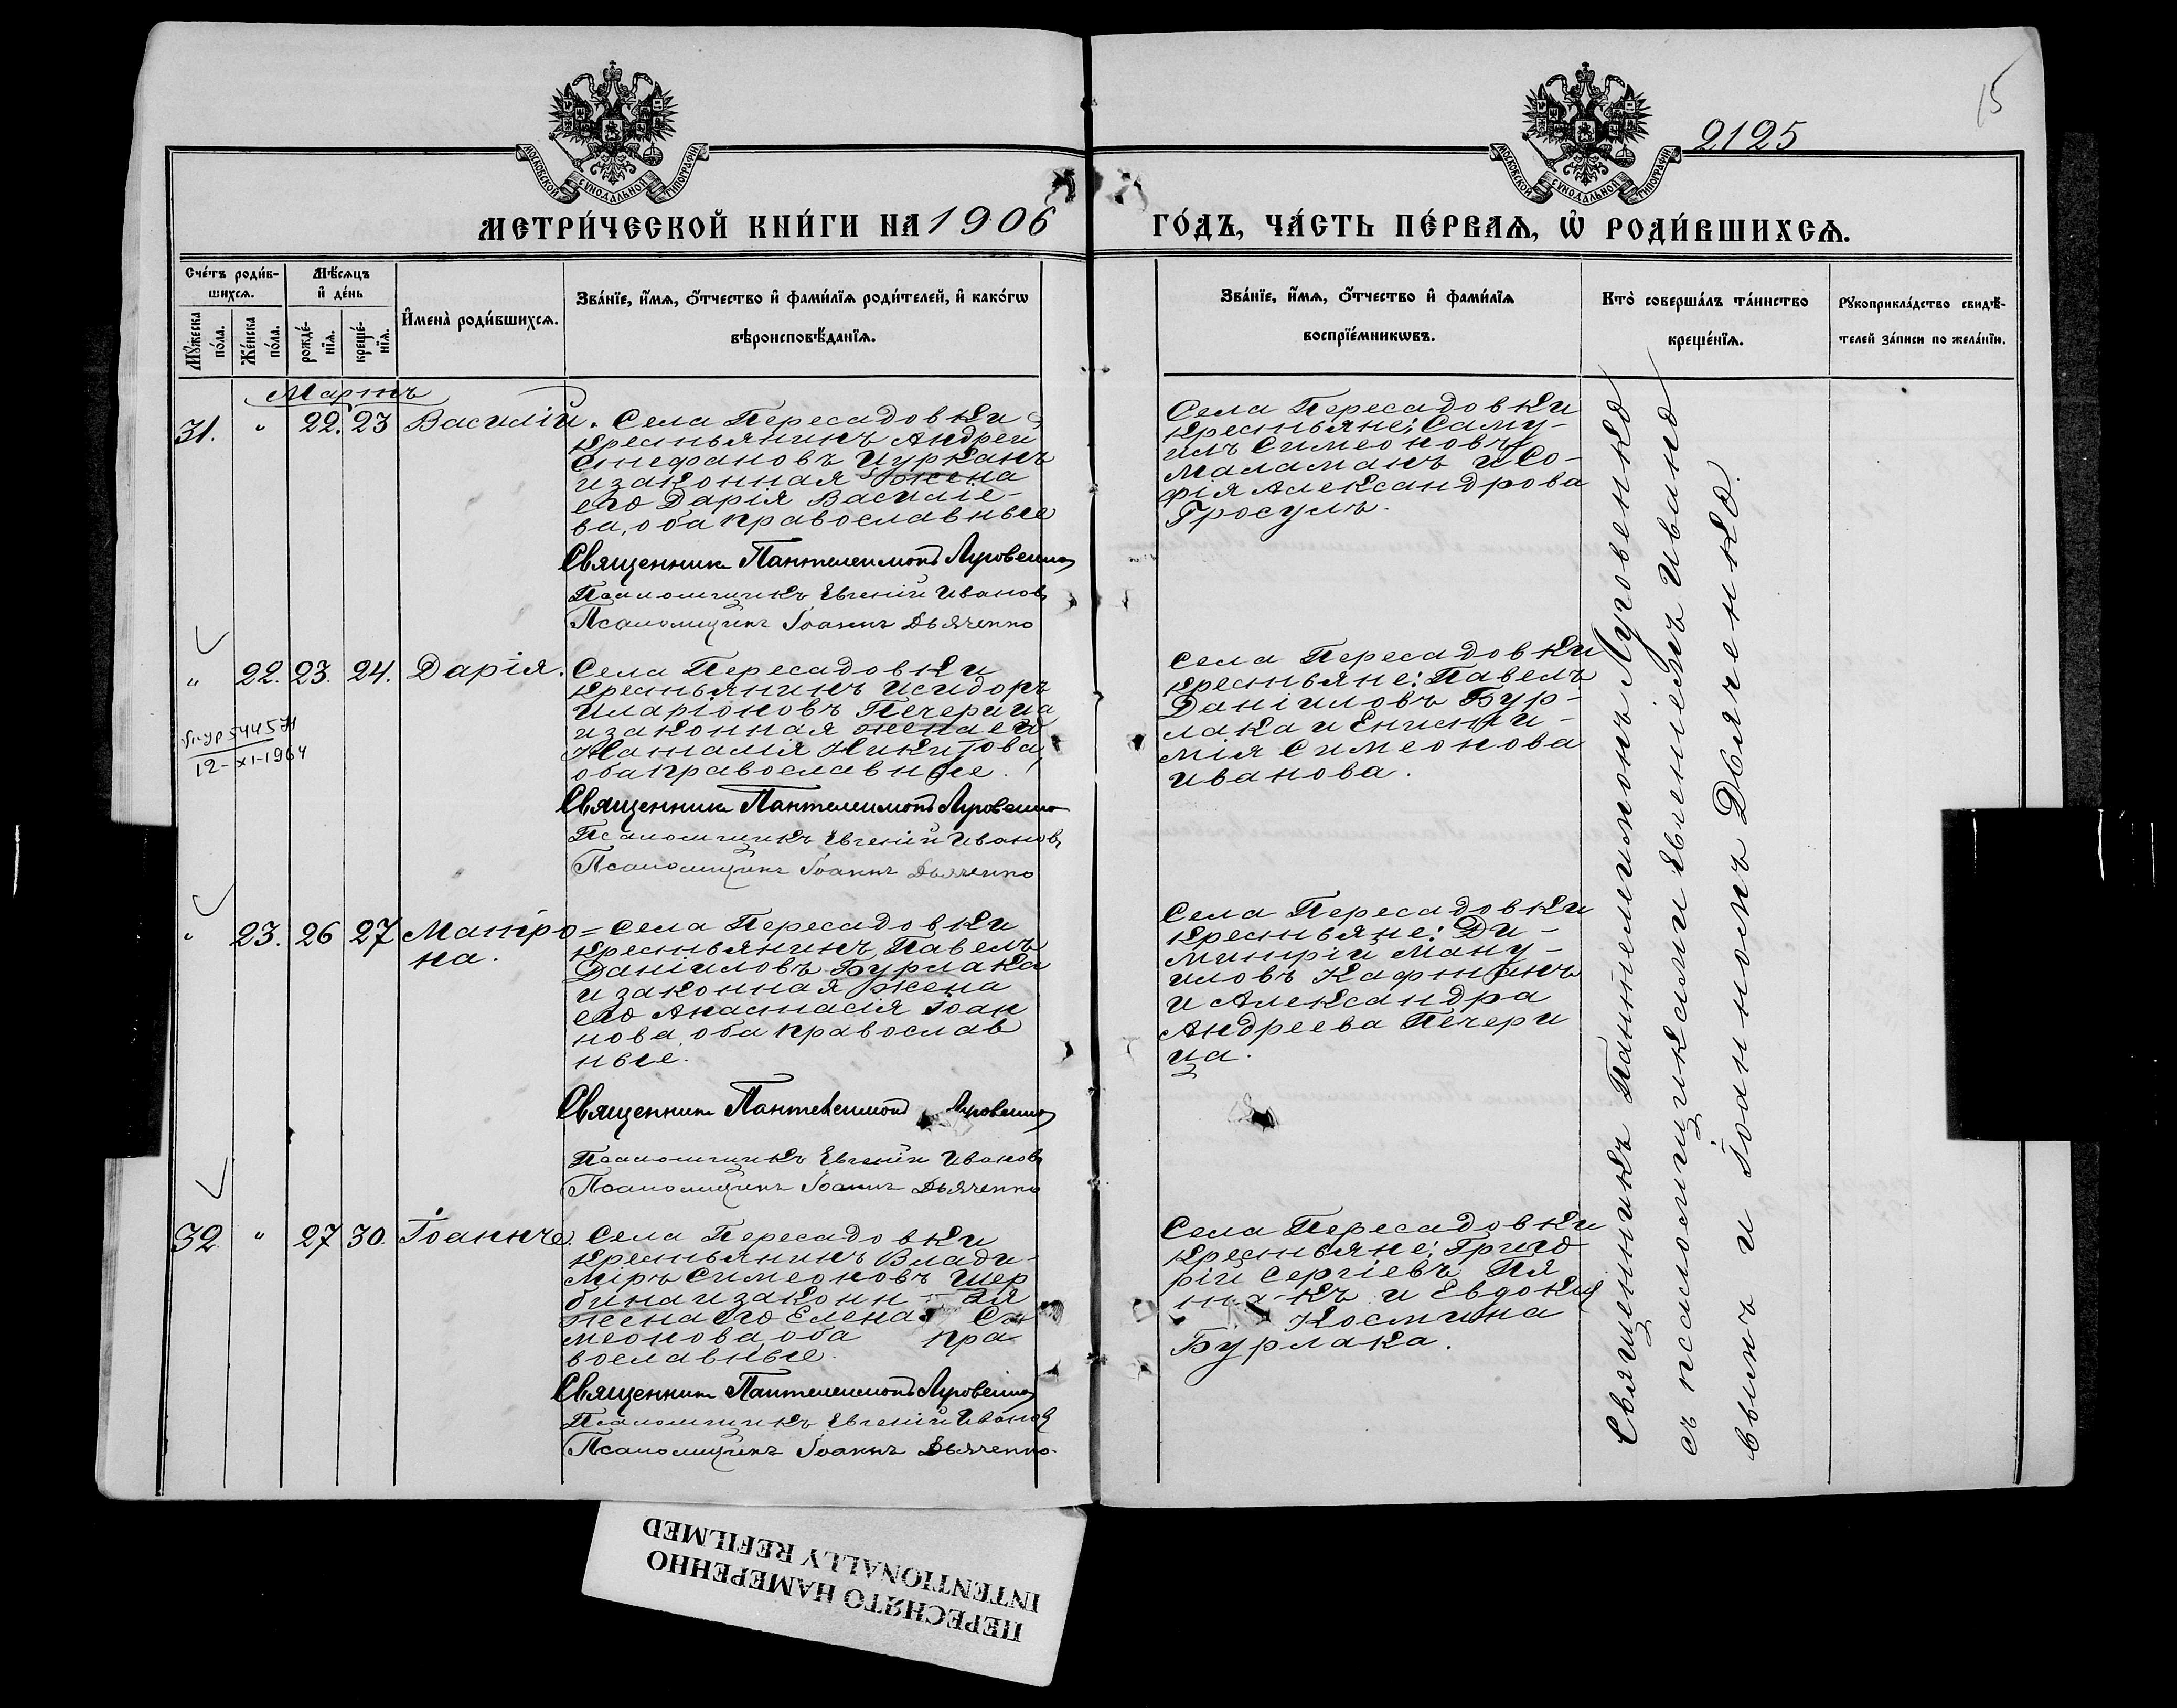 15
2125
МОСКОВСКОЙ СѴНОДАЛЬНОЙ ТИПОГРАФІИ
МОСКОВСКОЙ СѴНОДАЛЬНОЙ ТИПОГРАФІИ
МЕТРИ́ЧЕСКОЙ КНИ́ГИ НА 1906
ГО́ДЪ, ЧА́СТЬ ПЕ́РВАѦ, Ѡ҆ РОДИ́ВШИХСѦ.
Сче́тъ роди́в-
шихсѧ.
Мꙋ́жеска
по́ла.
Же́нска
по́ла.
Мѣ́сѧцъ
и҆ де́нь
рожде́-
нїѧ.
креще́-
нїѧ.
И҆мена̀ роди́вшихсѧ.
Зва́нїе, и҆́мѧ, ѻ҆́тчество и҆ фами́лїѧ роди́телей, и҆ како́гѡ
вѣроисповѣ́данїѧ.
Зва́нїе, и҆́мѧ, ѻ҆́тчество и҆ фами́лїѧ
воспрїе́мникѡвъ.
Кто̀ соверша́лъ та́инство
креще́нїѧ.
Рꙋкоприкла́дство свидѣ́-
телей за́писи по жела́нїю.
Мартъ
31. " 22. 23 Василій.
Села Пересадовки
крестьянинъ Андрей
Стефановъ Цурканъ
и законная жена
его Дарія Василіе-
ва, оба православные
Священникъ Пантелеимонъ Луговенко
Псаломщикъ Евгеній Ивановъ
Псаломщикъ Іоаннъ Дьяченко
Села Пересадовки
крестьяне: Саму-
илъ Симеоновъ
Маламанъ и Со-
фія Александрова
Гросулъ.
" 22. 23. 24. Дарія.
12-XI-1964
Села Пересадовки
крестьянинъ Исидоръ
Иларіоновъ Печерица
и законная жена его
Наталія Никитова,
оба православные.
Священникъ Пантелеимонъ Луговенко
Псаломщикъ Евгеній Ивановъ
Псаломщикъ Іоаннъ Дьяченко
Села Пересадовки
крестьяне: Павелъ
Даніиловъ Бур-
лака и Еписти-
мія Симеонова
Иванова.
" 23. 26 27 Матро=
на.
Села Пересадовки
крестьянинъ Павелъ
Даніиловъ Бурлака
и законная жена
его Анастасія Іоан
нова, оба православ
ные.
Священникъ Пантелеимонъ Луговенко
Псаломщикъ Евгеній Ивановъ
Псаломщикъ Іоаннъ Дьяченко
Села Пересадовки
крестьяне: Ди-
митрій Ману-
иловъ Кафтанъ
и Александра
Андреева Печери
ца.
32 " 27 30. Іоаннъ.
Села Пересадовки
крестьянинъ Влади-
міръ Симеоновъ Щер
бина и законн ая
жена его Елена Си
меонова, оба пра
вославные.
Священникъ Пантелеимонъ Луговенко
Псаломщикъ Евгеній Ивановъ
Псаломщикъ Іоаннъ Дьяченко.
Села Пересадовки
крестьяне: Григо
рій Сергіевъ Пя
та-къ и Евдокія
Космина
Бурлака.
Священникъ Пантелеимонъ Луговенко
съ псаломщиками Евгеніемъ Ивано
вымъ и Іоанномъ Дьяченко.
ПЕРЕСНЯТО НАМЕРЕННО
INTENTIONALLY REFILMED